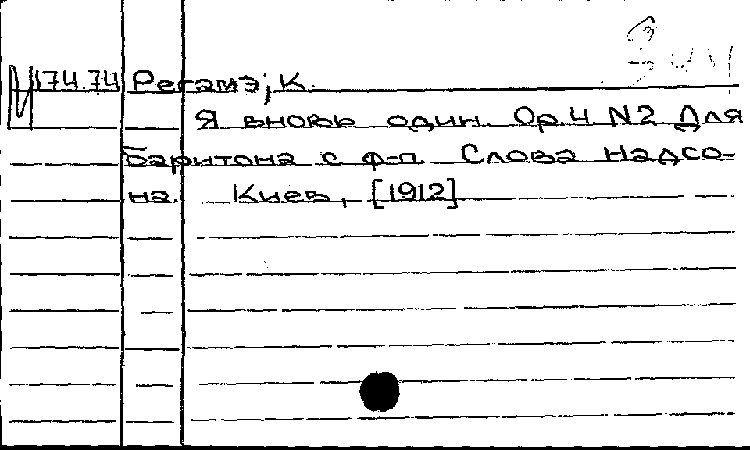 М174.74 Регамэ, К.
Я вновь один. Ор.4 N2 Для
баритона с ф-п. Слова Надсо-
на. Киев, [1912]